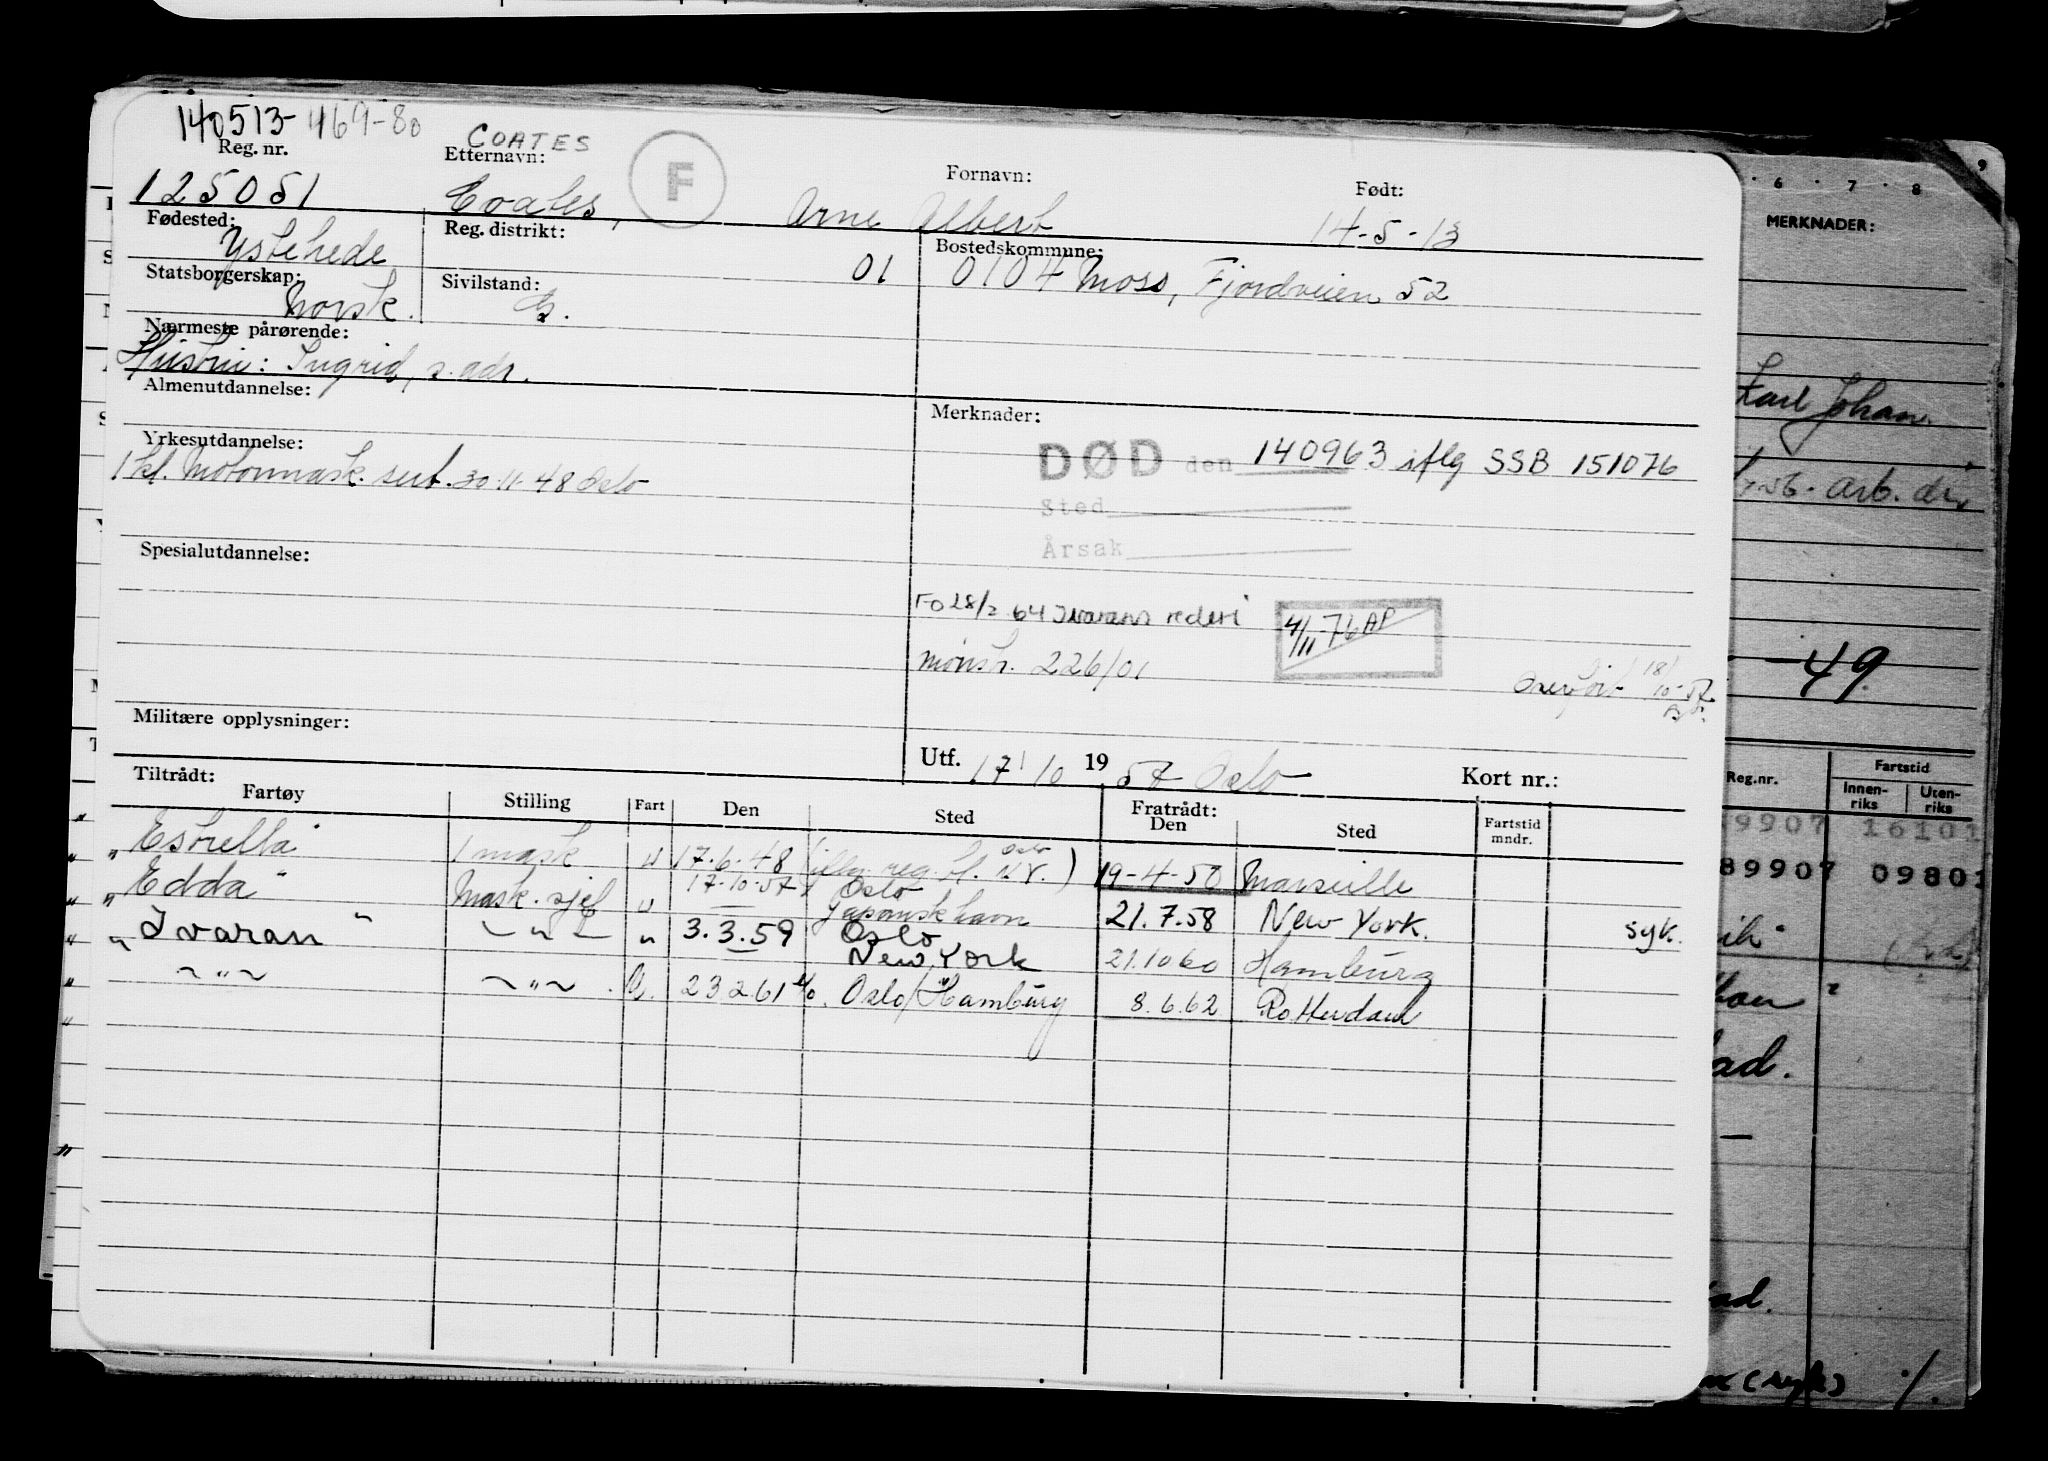 140513-46980
COATES
Reg. nr. Etternavn: F Fornavn: Født:
125051 Coates, Arne Albert 14-5-13
Fødested: Reg. distrikt: Bostedskommune:
Ystehede 01 0104 Moss, Fjordveien 52
Statsborgerskap: Sivilstand:
Norsk. G.
Nærmeste pårørende:
Hustru: Ingrid, s. adr.
Almenutdannelse: Merknader:
Yrkesutdannelse: DØD den 140963 iflg SSB 151076
1 kl. Motormask. sert. 30.11.48 Oslo
Sted
Årsak
Spesialutdannelse:
FO 28/2 64 Ivarans rederi 4/11-76 AP
mønstr. 226/01
Overført 18/10-57
Militære opplysninger:
Utf. 17/10 1957 Oslo Kort nr.:
Tiltrådt: Fratrådt:
Fartøy Stilling Fart Den Sted Den Sted Fartstid mndr.
"Estrella" 1 mask u 17.6.48 Oslo 19-4-50 Marseille
"Edda" Mask. sjef u 17-10-57 Oslo Japansk havn 21.7.58 New York. syk.
"Ivaran" — " — " 3.3.59 Oslo New York 21.10 60 Hamburg
— " — — " — U. 23 2 61 Oslo/Hamburg 8.6.62 Rotterdam
6 7 8 9
MERKNADER:
Karl Johan
arb. dir
-49.
Reg.nr. Fartstid
Innenriks Utenriks
9907 16101
89907 0980
ad.
ad.